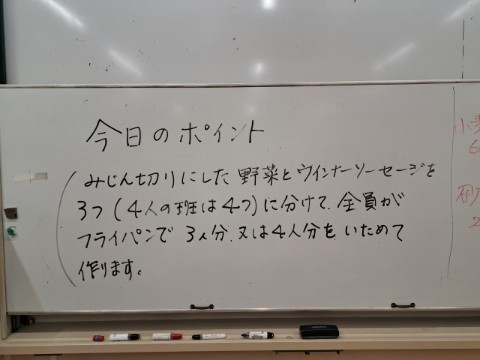 今日のポイント
みじん切りにした野菜とウインナーソーセージを
3つ(4人の班は4つ)に分けて、全員が
フライパンで3人分、又は4人分をいためて
作ります。
小
6
砂
2